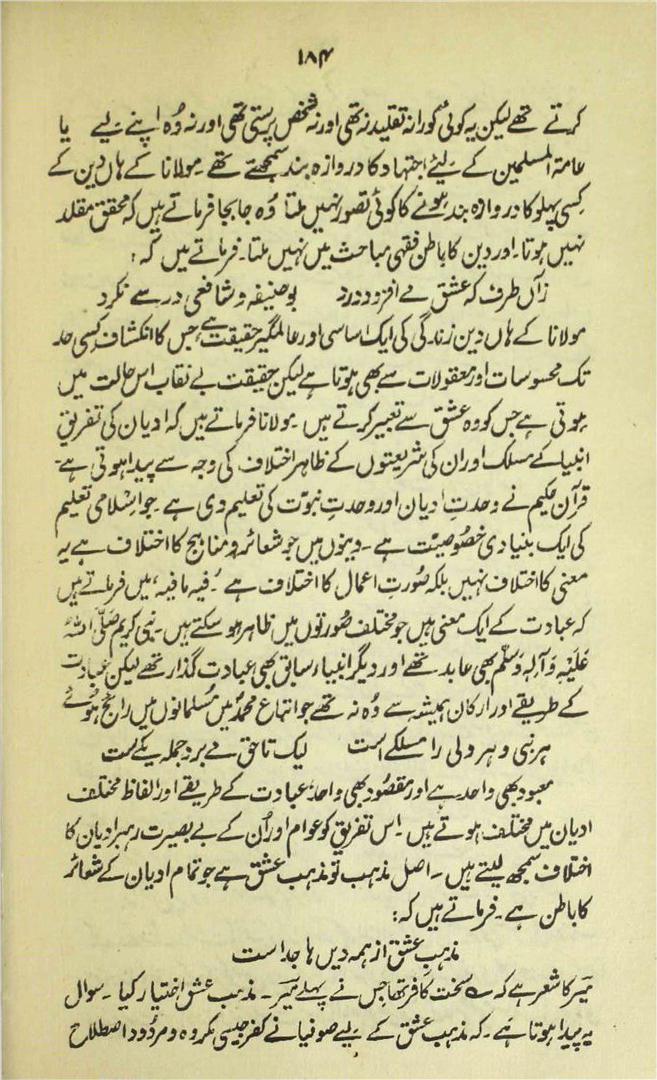 ۱۸۴
کرتے تھے لیکن یہ کوئی کورانہ تقلید نہ تھی اور نہ شخص پرستی تھی اور نہ وُہ اپنے لیے یا
عامۃ المسلمین کے لیئے اجتہاد کا دروازہ بند سمجھتے تھے ۔ مولانا کے ہاں دین کے
کسی پہلو کا دروازہ بند ہونے کا کوئی تصور نہیں ملتا وُہ جا بجا فرماتے ہیں کہ محقق مقلد
نہیں ہوتا۔ اور دین کا باطن فقہی مباحث میں نہیں ملتا۔ فرماتے ہیں کہ :
زآں طرف کہ عشق مے افزود درد بوحنیفہ و شافعی درسے نکرد
مولانا کے ہاں دین زندگی کی ایک اساسی اور عالمگیر حقیقت ہے، جس کا انکشاف کسی حد
تک محسوسات اور معقولات سے بھی ہوتا ہے لیکن حقیقت بے نقاب اس حالت میں
ہوتی ہے جس کو وہ عشق سے تعبیر کرتے ہیں ۔ مولانا فرماتے ہیں کہ ادیان کی تفریق
انبیا کے مسلک اور ان کی شریعتوں کے ظاہر اختلاف کی وجہ سے پیدا ہوتی ہے۔
قرآن حکیم نے وحدتِ ادیان اور وحدتِ نبوّت کی تعلیم دی ہے ۔ جو اسلامی تعلیم
کی ایک بنیادی خصُوصیت ہے ۔ دینوں میں جو شعائر و مناہج کا اختلاف ہے یہ
معنی کا اختلاف نہیں بلکہ صُورتِ اعمال کا اختلاف ہے ۔ 'فیہ ما فیہ' میں فرماتے ہیں
کہ عبادت کے ایک معنی ہیں جو مختلف صُورتوں میں ظاہر ہو سکتے ہیں ۔ نبی کریم صلّی اللہُ
عَلَیْہِ وَآلِہٖ وَسَلَّم بھی عابد تھے اور دیگر انبیاء سابق بھی عبادت گذار تھے لیکن عبادت
کے طریقے اور ارکان ہمیشہ سے وُہ نہ تھے جو اتباع محمدؐ میں مُسلمانوں میں رائج ہُوئے
ہر نبی و ہر ولی را مسلکے است لیک تا حق مے برد جملہ یکے ست
معبود بھی واحد ہے اور مقصُود بھی واحد، عبادت کے طریقے اور الفاظ مختلف
ادیان میں مختلف ہوتے ہیں ۔ اس تفریق کو عوام اور اُن کے بے بصیرت رہبر ادیان کا
اختلاف سمجھ لیتے ہیں ۔ اصل مذہب تو مذہب عشق ہے جو تمام ادیان کے شعائر
کا باطن ہے ۔ فرماتے ہیں کہ :
مذہبِ عشق از ہمہ دیں ہا جدا است
میر کا شعر ہے کہ سخت کافر تھا جس نے پہلے میر ۔ مذہب عشق اختیار کیا ۔ سوال
یہ پیدا ہوتا ہے ۔ کہ مذہب عشق کے لیے صوفیا نے کفر جیسی مکروہ و مردُود اصطلاح